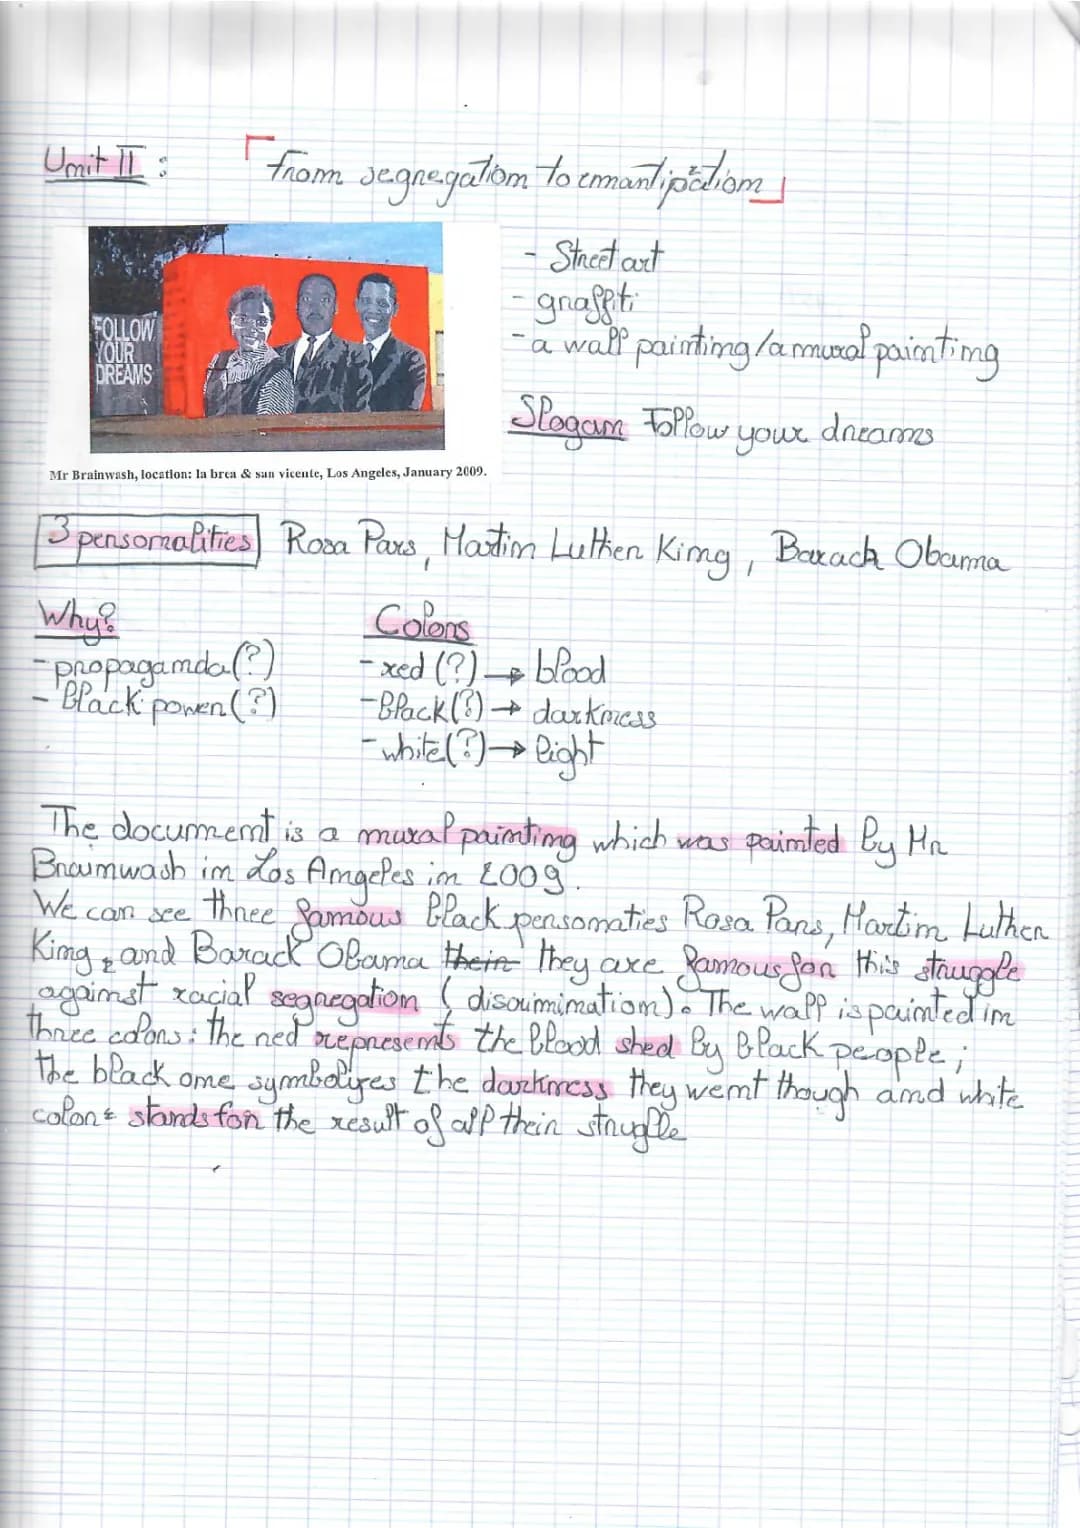 Unit II : "from segregation to emantipation"
FOLLOW
YOUR
DREAMS
- Street art
- graffiti
- a wall painting/a mural painting
Slogan Follow your dreams
Mr Brainwash, location: la brea & san vicente, Los Angeles, January 2009.
3 personalities Rosa Pars, Martin Luther King, Barack Obama
Why?
- propaganda (?)
- Black power (?)
Colors
- red (?) → blood
- Black (?) → darkness
- white (?) → light
The document is a mural painting which was painted by Mr
Brainwash in Los Angeles in 2009.
We can see three famous black personaties Rosa Pars, Martin Luther
King, and Barack Obama their they are famous for this struggle
against racial segregation ( discrimination). The wall is painted in
three colors : the red represents the blood shed by Black people ;
the black one symbolyzes the darkness they went though and white
color stands for the result of all their strugle